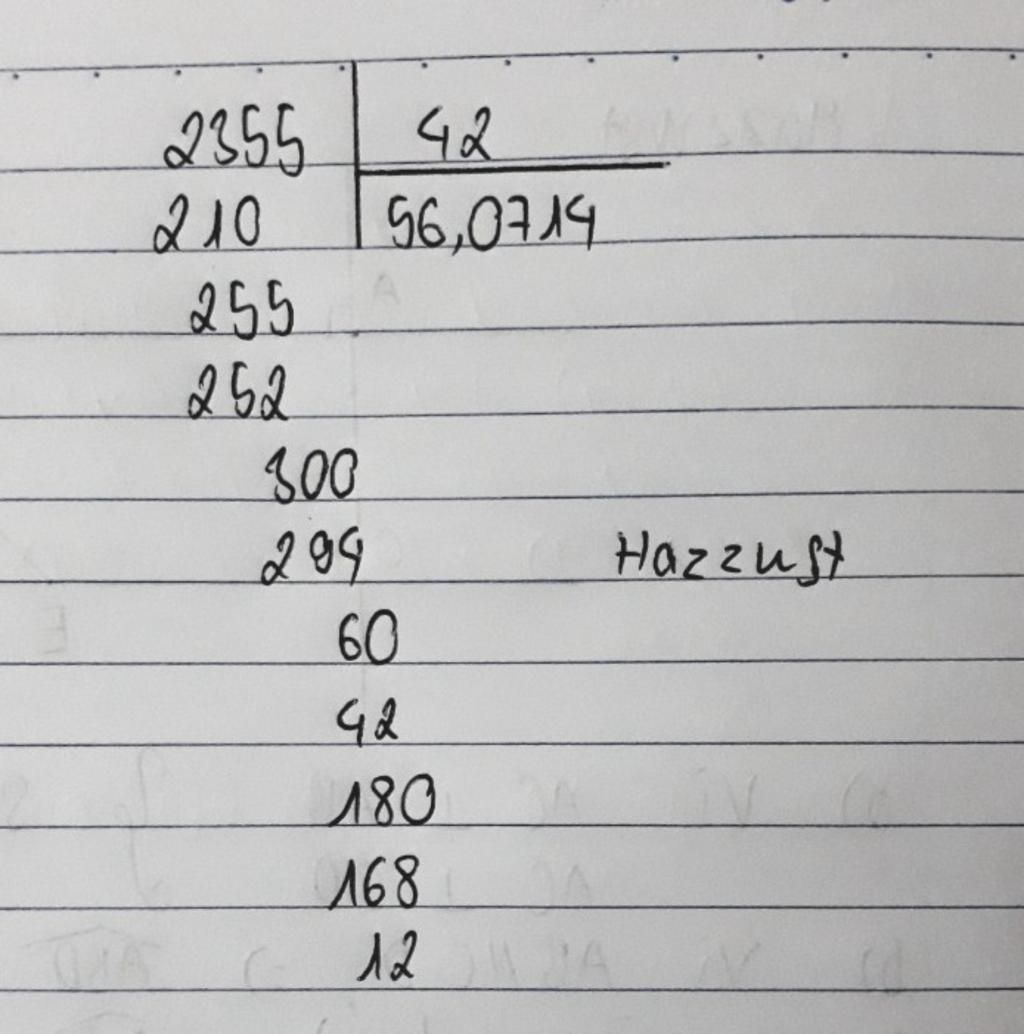 2355 42
210 56,0714
255
252
300
294 Hazzust
60
42
180
168
12